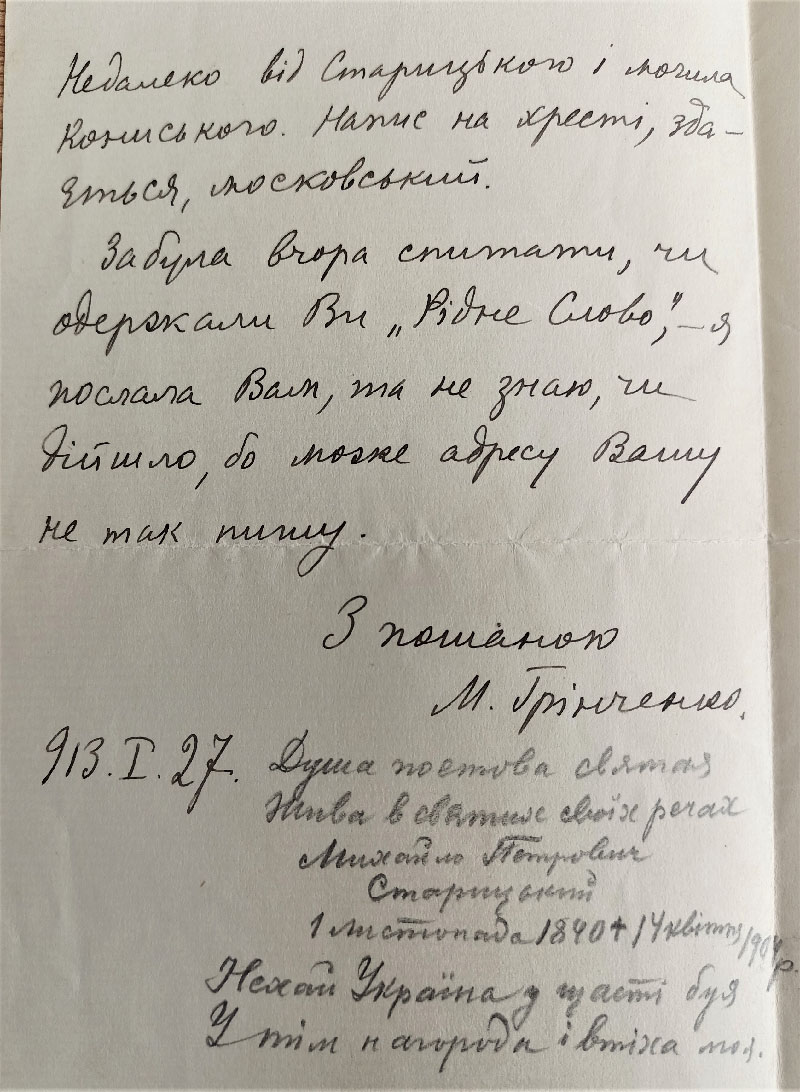 Недалеко від Старицького і могила
Кониського. Напис на хресті, зда-
ється, московський.
Забула вчора спитати, чи
одержали Ви „Рідне Слово", – я
послала Вам, та не знаю, чи
дійшло, бо може адресу Вашу
не так пишу.
З пошаною
М. Грінченко.
913. I. 27.
Душа поетова святая
Жива в святих своїх речах
Михайло Петрович
Старицький
1 листопада 1840 + 14 квітня 1904 р.
Нехай Україна у щасті буя
У тім нагорода і втіха моя.